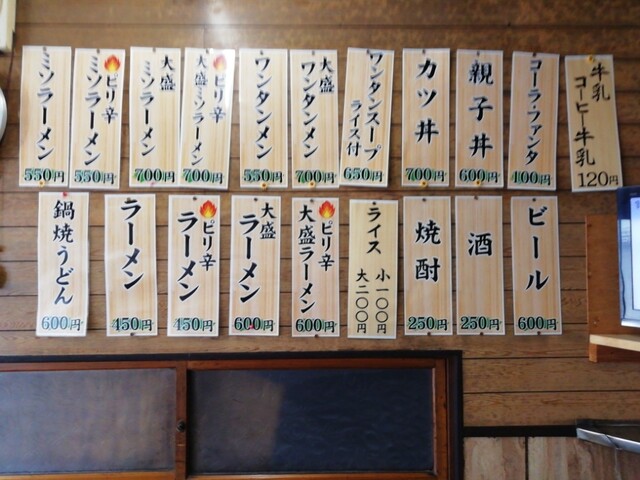 ミソラーメン
550円
ピリ辛
ミソラーメン
550円
大盛
ミソラーメン
700円
ピリ辛
大盛ミソラーメン
700円
ワンタンメン
550円
大盛
ワンタンメン
700円
ワンタンスープ
ライス付
650円
カツ丼
700円
親子丼
600円
コーラ・ファンタ
400円
牛乳
コーヒー牛乳
120円
鍋焼うどん
600円
ラーメン
450円
ピリ辛
ラーメン
450円
大盛
ラーメン
600円
ピリ辛
大盛ラーメン
600円
ライス
小一〇〇円
大二〇〇円
焼酎
250円
酒
250円
ビール
600円